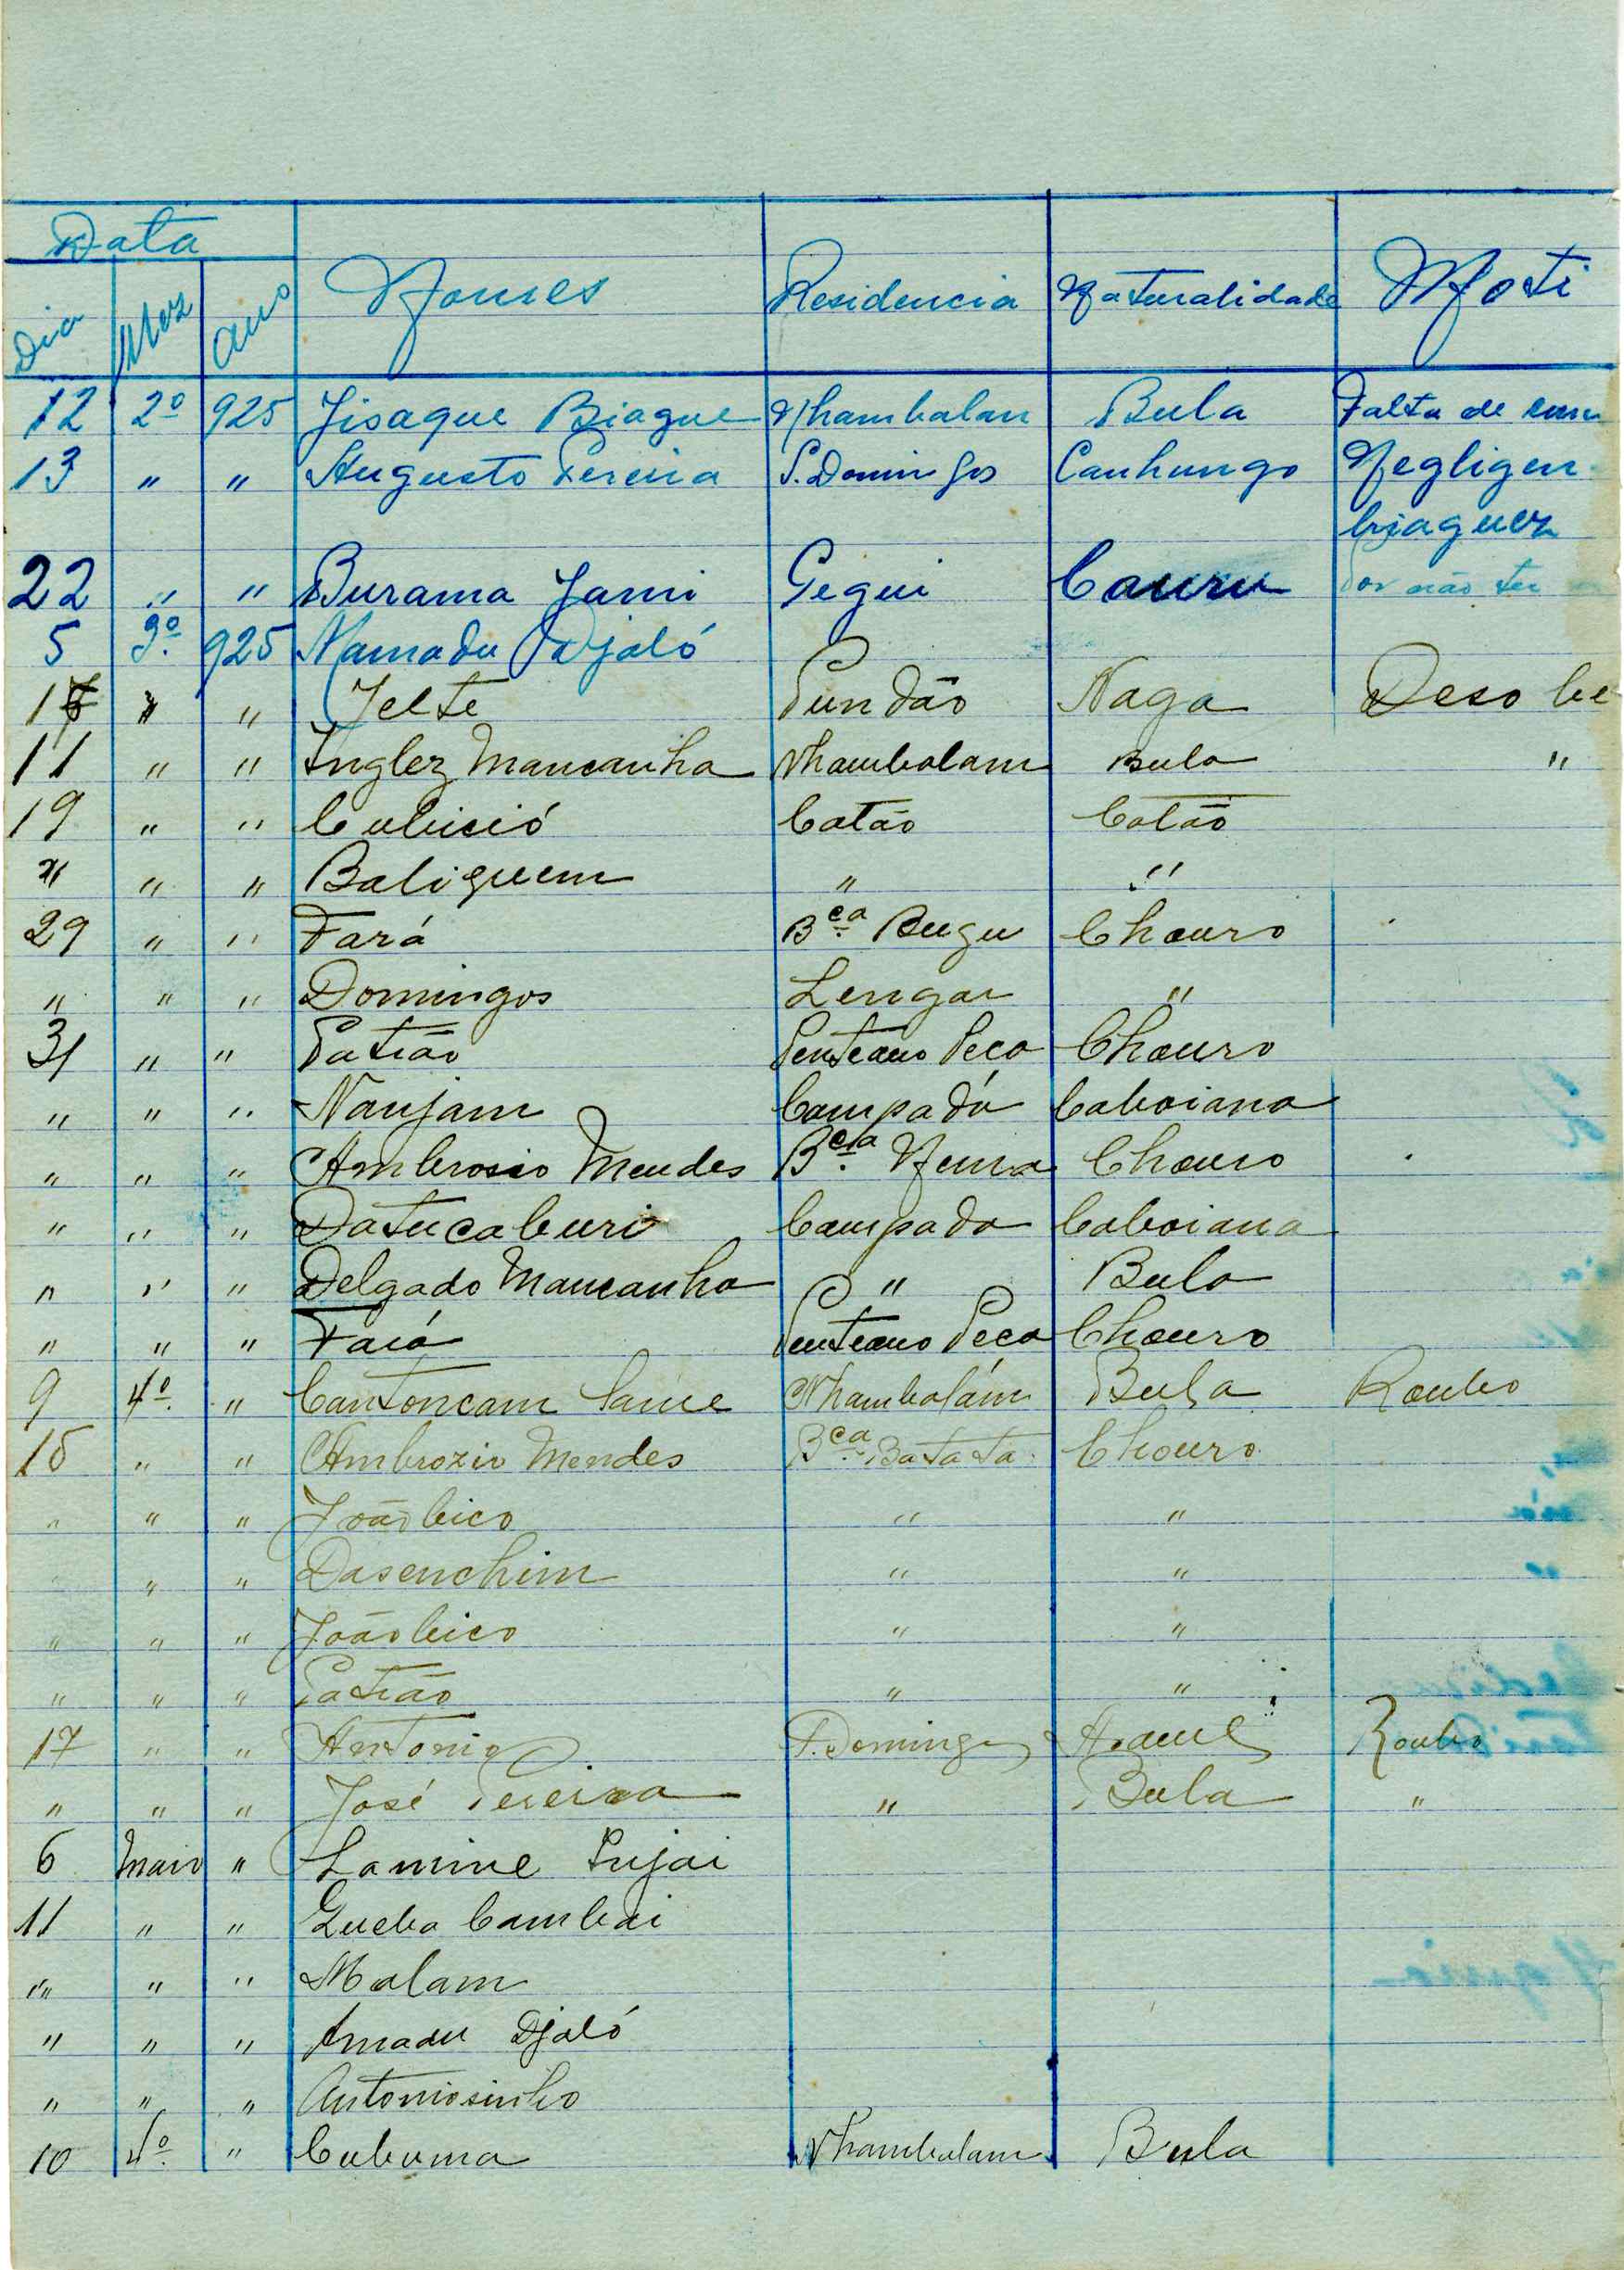 Data
Dia Mez Ano Nomes Residencia Naturalidade Moti
12 2º 925 Jisaque Biague Nhambalan Bula Falta de
13 " " Augusto Pereira S. Domingos Canhungo Negligen
22 " " Burama Jami Gegui Cauru Por não ter
5 3º 925 Mamadu Djaló
" " Jelte Pundão Naga Desobe
11 " " Inglez Mancanha Nhambalam Bula "
19 " " Catão Catão
" " " Baliguem " "
29 " " Fará Bca. Bugu Chouro
" " " Domingos Lengar "
31 " " Patrão Penteano Peca Chouro
" " " Nanjam Campada Caboiana
" " " Ambrosio Mendes Bca. Nema Chouro
" " " Datucaburi Campada Caboiana
" " " Delgado Mancanha " Bula
" " " Faiá Penteano Peca Chouro
9 4º " Cantoncam Same Nhambalám Bula Roubo
15 " " Ambrozio Mendes Bca. Batata Chouro
" " " João bico " "
" " Dasenchim " "
" " " João bico " "
" " " Patrão " "
17 " " Antonio S. Domingos Roubo
" " " José Pereira " Bula "
6 Maio " Lamine Injai
11 " " Queba Cambai
" " " Malam
" " " Amadu Djaló
" " " Antoniosinho
10 4º " Cubuma Nhambalam Bula